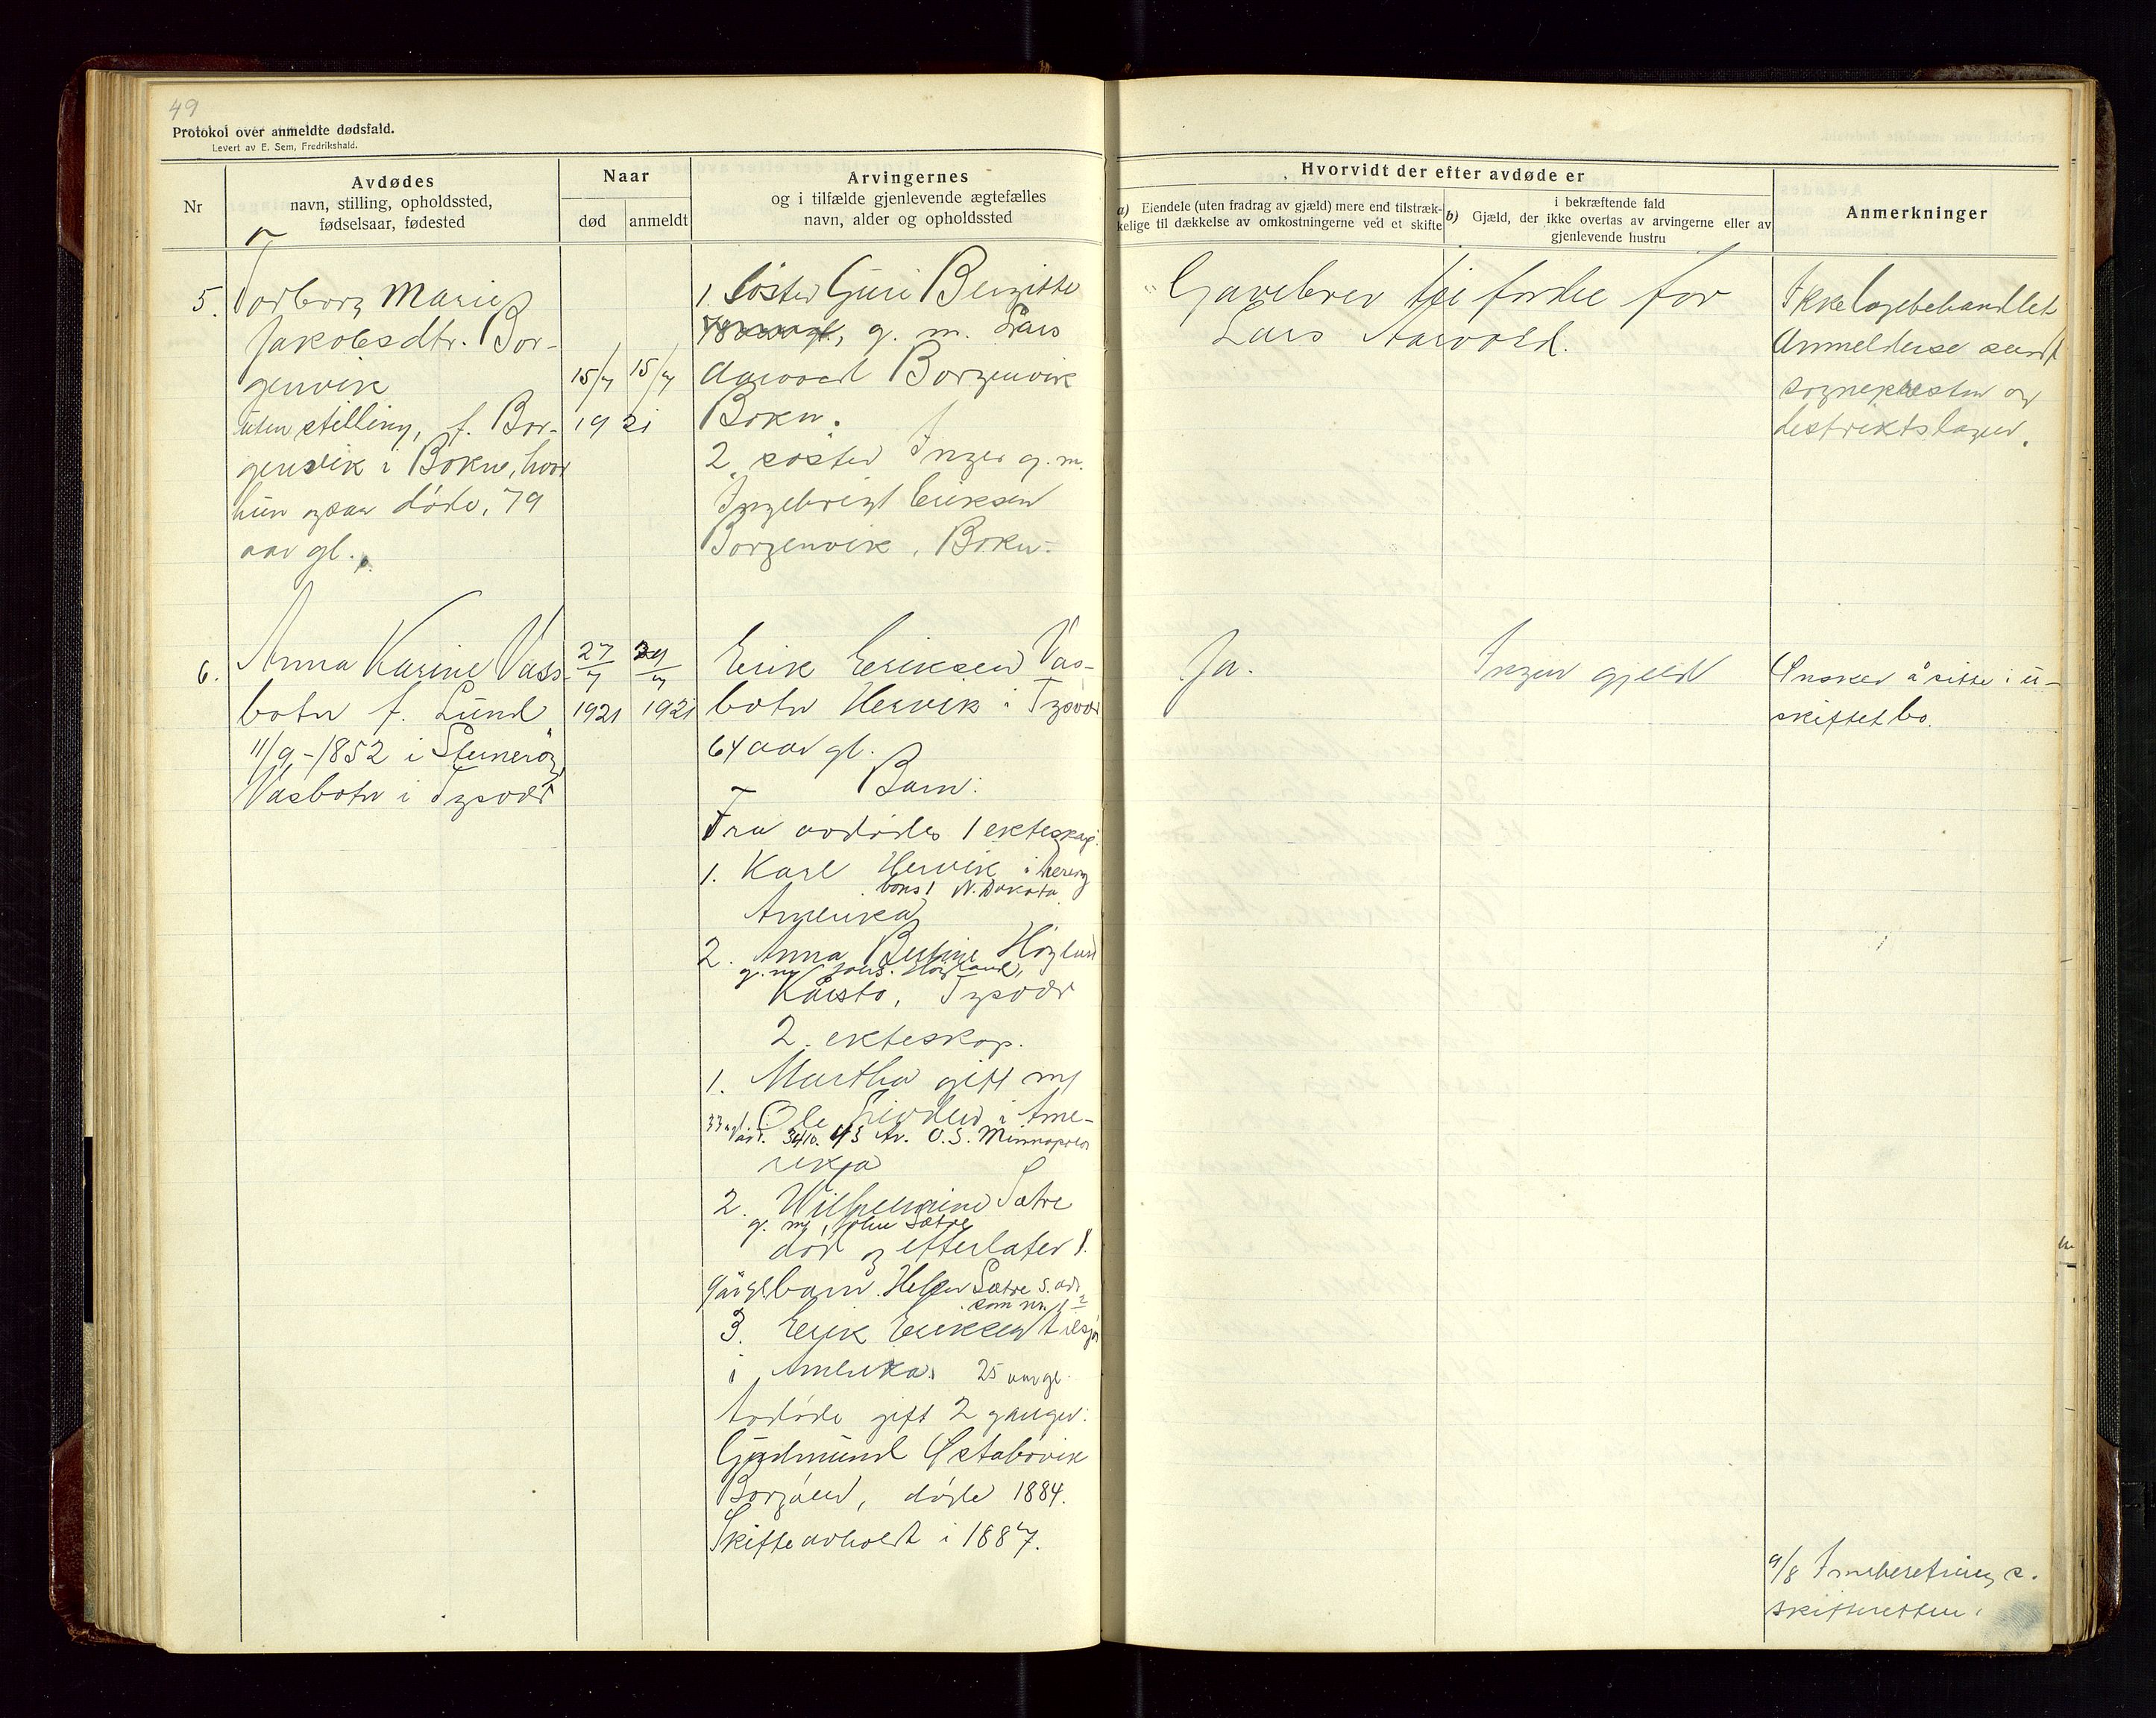 49
Protokol over anmeldte dødsfald.
Levert av E. Sem, Fredrikshald.
Nr
Avdødes
navn, stilling, opholdssted,
fødselsaar, fødested
Naar
død
anmeldt
Arvingernes
og i tilfælde gjenlevende ægtefælles
navn, alder og opholdssted
Hvorvidt der efter avdøde er
a) Eiendele (uten fradrag av gjæld) mere end tilstræk-
kelige til dækkelse av omkostningerne ved et skifte
i bekræftende fald
b) Gjæld, der ikke overtas av arvingerne eller av
gjenlevende hustru
Anmerkninger
5.
Torborg Marie
Jakobsdtr. Bor-
genvik
uten stilling, f. Bor-
genvik i Bokn, hvor
hun ogsaa døde, 79
aar gl.
15/7 15/7
19 21
1. Söster Guri Bergitte
g. m. Lars
Aarvold Borgenvik
Bokn.
2. söster Inger g. m.
Ingebrigt Eriksen
Borgenvik, Bokn.
Gavebrev til fordel for
Lars Aarvold.
Ikke lægebehandlet
Anmeldelse sendt
sognepresten og
distriktslægen.
6.
Anna Karine Vass-
botn f. Lund
11/9-1852 i
Vasbotn i Tysvær
27/7
1921
/7
1921
Erik Eriksen Vas-
botn Hervik i Tysvær
64 aar gl.
Barn:
Fra avdødes 1 ekteskap.
1. Karl Hervik i
N. Dakota
Amerika
2. Anna Bertine Høyland
g. m/ Johs. Høyland,
Kårstø, Tysvær
2. ekteskap.
1. Martha gift m/
Ole i Ame-
33 a gl. 3410. 43 Av. O. S. Minnapolis
rika
2. Wilhelmine Sætre
g. m/ John Sætre
død og efterlater 1.
barn. Helen Sætre s. adr
som nr. 1
3. Erik Eriksen
i Amerika. 25 aar gl.
Avdøde gift 2 ganger:
Gudmund Østabøvik
Borgøen, døde 1884.
Skifte avholdt i 1887.
Ja.
Ingen gjeld
Ønsker å sitte i u-
skiftet bo.
9/8 Innberetning s.
skifteretten.